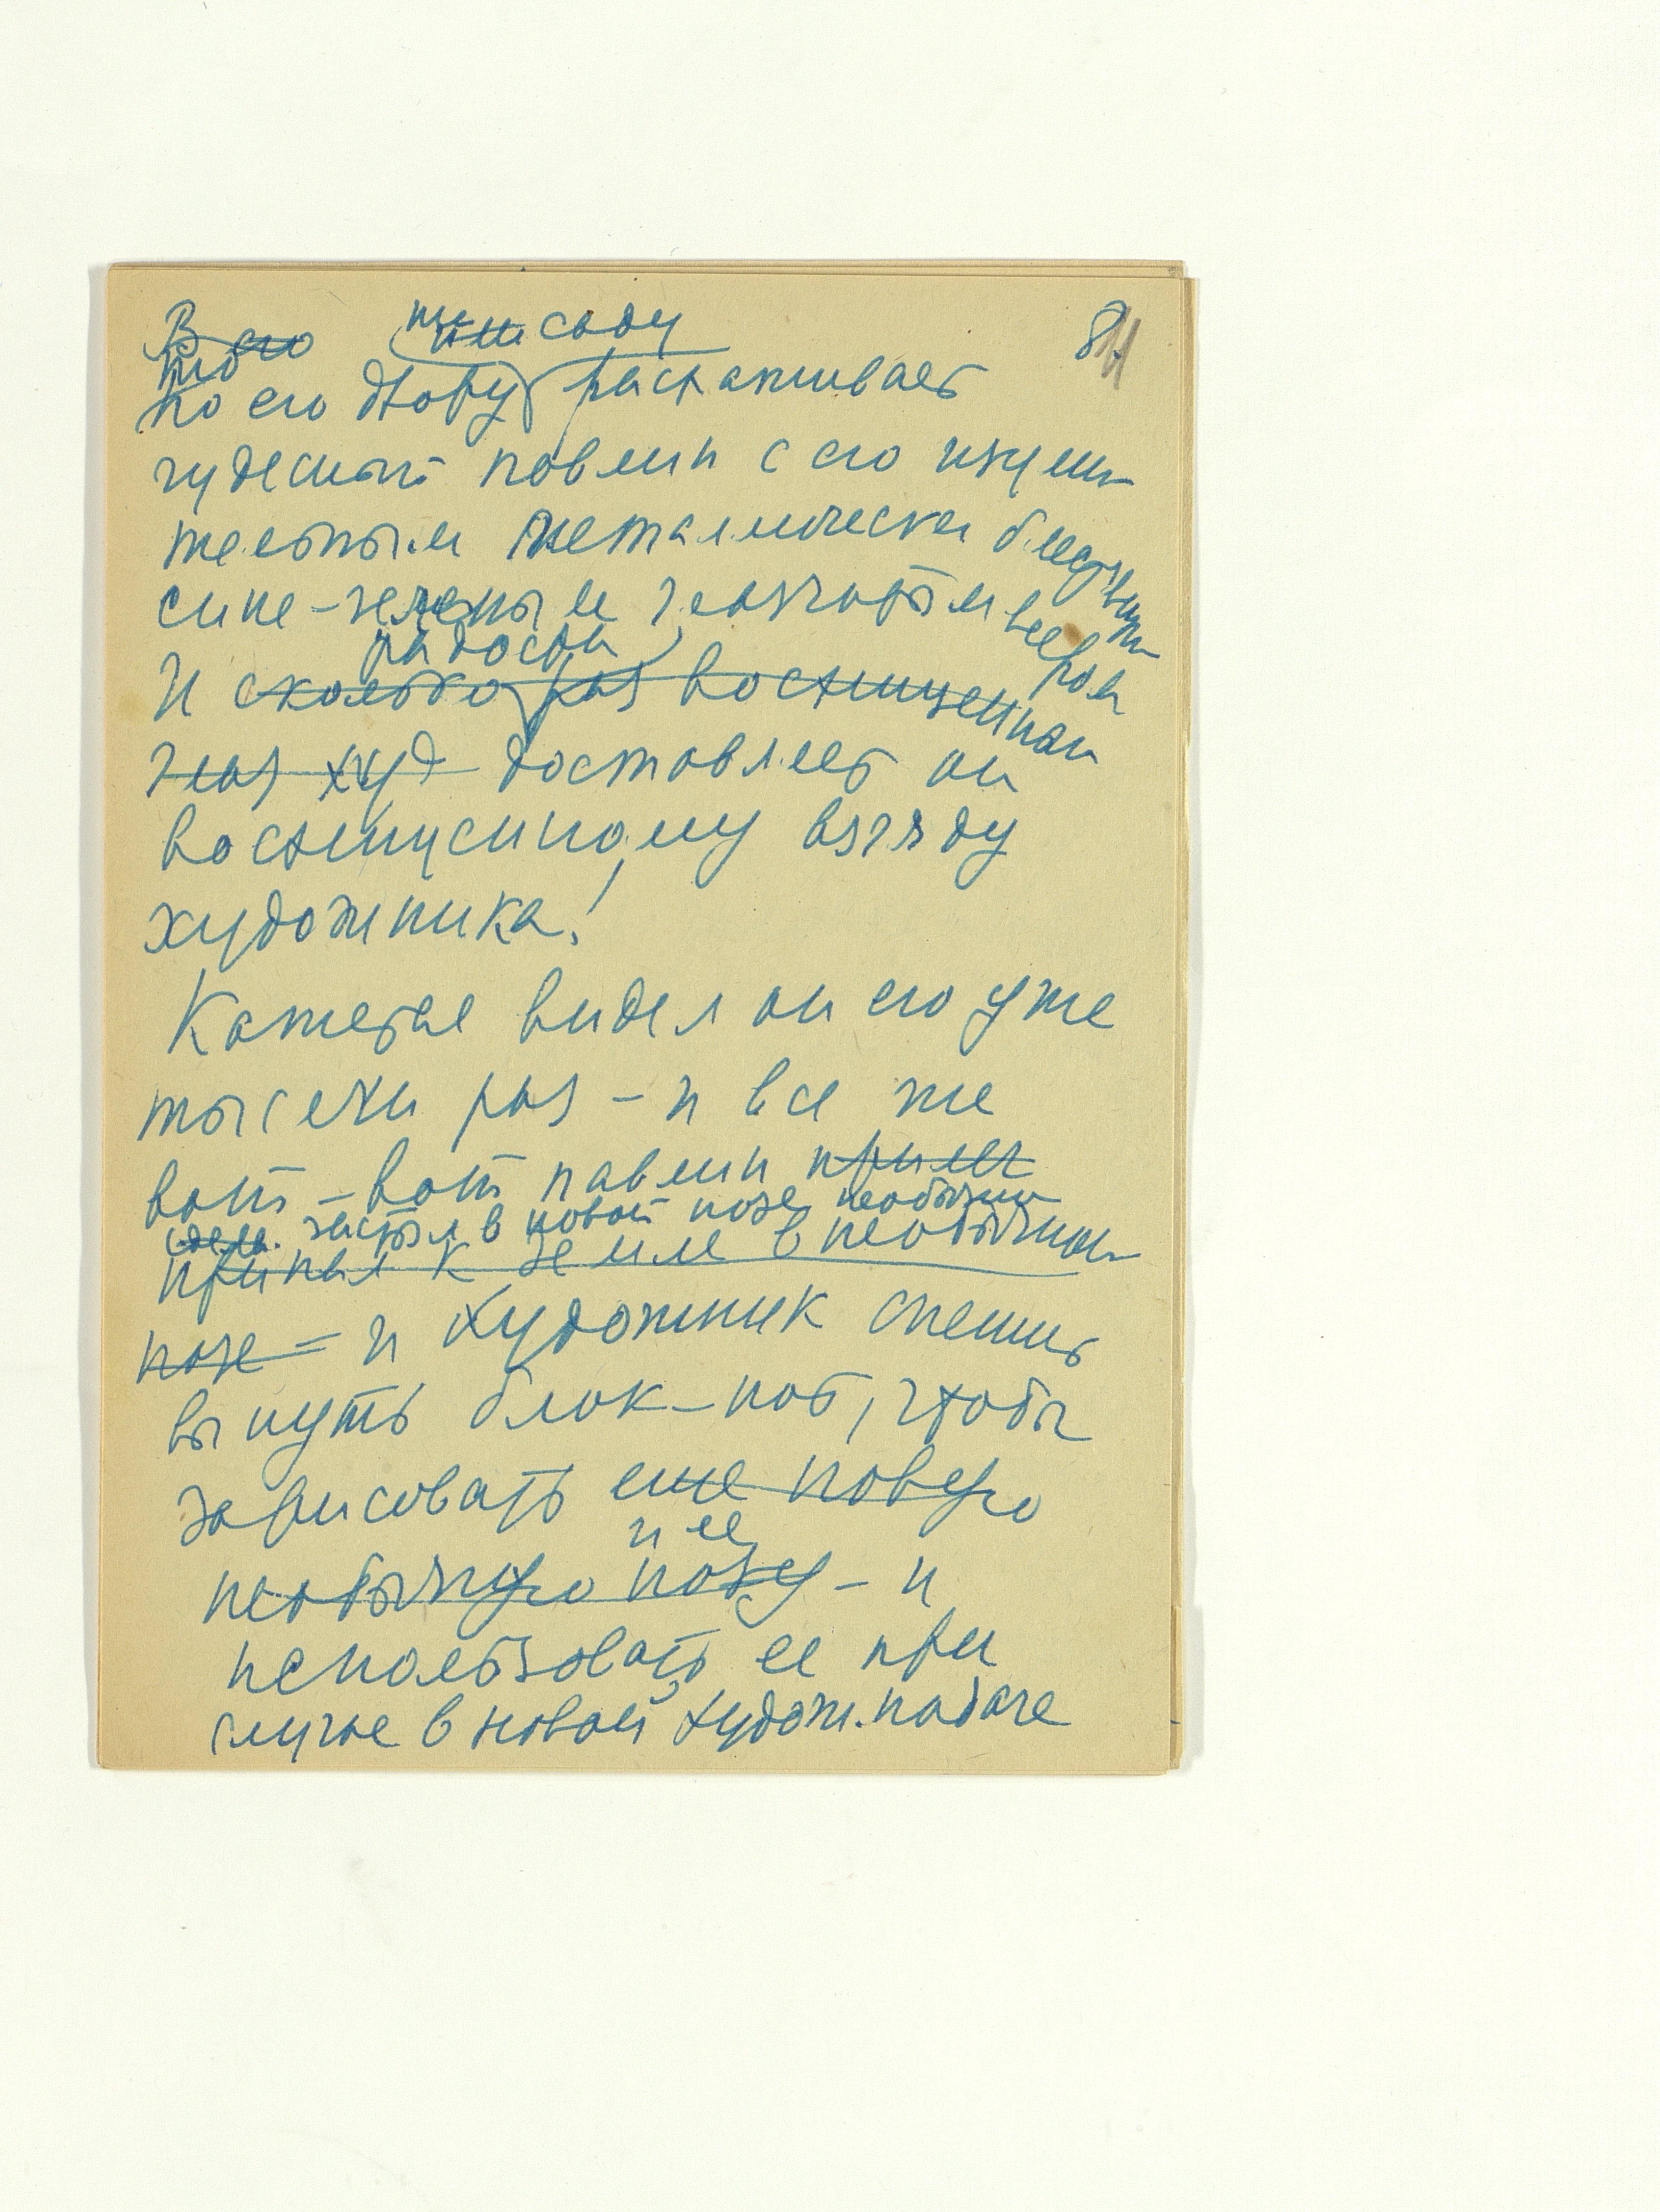 В его саду 8.
По его двору расхаживает
чудесный павлин с его изуми-
тельным металлически блестящим
сине-зеленым глазчатым веером
радости
И сколько раз восхищенный
глаз худ доставляет он
восхищенному взгляду
художника!
Кажется видел он его уже
тысячи раз – и все же
вот-вот павлин
застыл в новой позе необычн
припал к земле в необычной
позе – и художник спешит
вынуть блок-нот, чтобы
зарисовать еще новую
и ее
необычную позу – и
использовать ее при
случае в новой худож. подаче